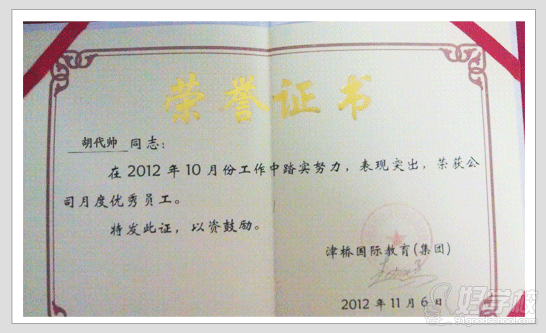 荣誉证书
胡代帅 同志：
在2012年10月份工作中踏实努力，表现突出，荣获公
司月度优秀员工。
特发此证，以资鼓励。
津桥国际教育(集团)
2012年11月6日
好学校